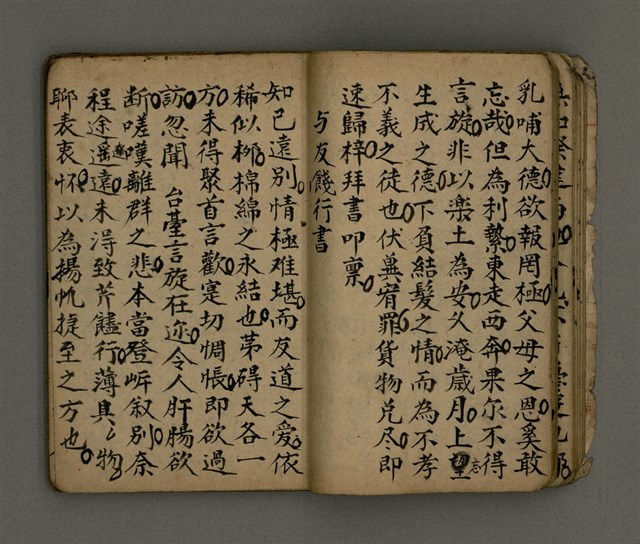 乳哺大德欲報罔極父母之恩奚敢
忘哉但為利繫東走西奔果尓不得
言旋非以楽土為安久淹歲月上忘
生成之德下負結髮之情而為不孝
不義之徒也伏兾宥罪貨物兑尽即
速歸梓拜書叩禀
与友餞行書
知己遠別情極难堪而友道之爱依
稀似柳棉綿之永結也苐碍天各一
方未得聚首言歡寔切惆悵即欲過
訪忽聞 台䑓言旋在迩令人肝腸欲
断嗟嘆離群之悲本當登㟁叙別奈
程途遥遠未淂致芹饈行薄具物
聊表衷怀以為揚帆捷至之方也